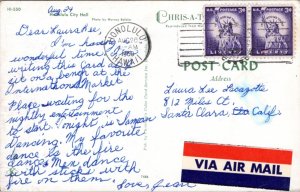 HI-350
Honolulu City Hall
Aug 24
Dear Laura Lee,
I'm having
wonderful time
writing this Card as I
sit on a bench at the
International Market
Place waiting for the
nightly entertainment
to start. Tonight is Samoan
Dancing. My favorite
dance is the fire
dance. Men dance
with sticks with
fire on them.
Love, Jean
HONOLULU
AUG
PM
HAWAII
U.S. POSTAGE
3¢
LIBERTY
U.S. POSTAGE
3¢
LIBERTY
POST CARD
Address
Laura Lee
812 Miles Ct.
Santa Clara, Calif
VIA AIR MAIL